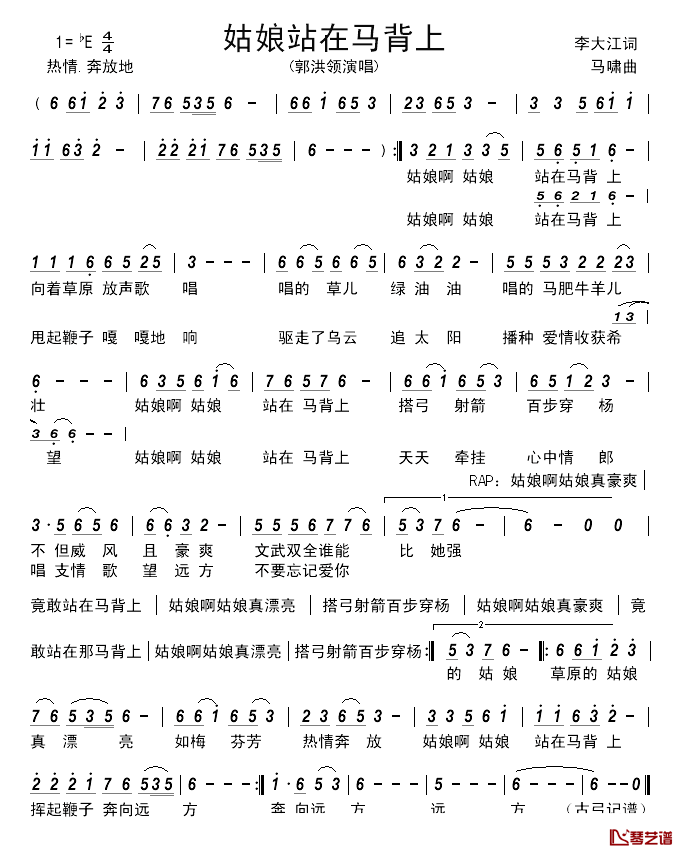 1=♭E 4/4 姑娘站在马背上 李大江词
热情.奔放地 (郭洪领演唱) 马啸曲
( 6 6 1 2 3 | 7 6 5 3 5 6 - | 6 1 6 5 3 5 | 2 3 6 5 3 - | 3 3 5 6 1 1 |
1 1 6 3 2 - | 2 2 2 1 7 6 5 3 5 | 6 - - - ) :‖ 3 2 1 3 3 5 | 5 6 5 1 6 - |
姑娘啊 姑娘 站在马背 上
5 6 2 1 6 - |
姑娘啊 姑娘 站在马背 上
1 1 1 6 6 5 2 5 | 3 - - - | 6 5 6 5 6 6 5 | 6 3 2 2 - | 5 5 5 3 2 2 2 3 |
向着草原 放声歌 唱 唱的 草儿 绿 油 油 唱的 马肥牛羊儿
甩起鞭子 嘎 嘎地 响 驱走了乌云 追 太 阳 播种 爱情收获希
1 3 |
6 - - - | 6 3 5 6 1 6 | 7 6 5 7 6 - | 6 6 1 6 5 3 | 6 5 1 2 3 - |
壮 姑娘啊 姑娘 站在 马背上 搭弓 射箭 百步穿 杨
3 6 6 - - |
望 姑娘啊 姑娘 站在 马背上 天天 牵挂 心中情 郎
RAP: 姑娘啊姑娘真豪爽 |
3 · 5 6 5 6 | 6 6 3 2 - | 5 5 6 5 7 7 6 | 5 3 7 6 - | 6 - 0 0 |
不 但威 风 且 豪 爽 文武双全谁能 比 她强
唱 支情 歌 望 远 方 不要忘记爱你
竟敢站在马背上 | 姑娘啊姑娘真漂亮 | 搭弓射箭百步穿杨 | 姑娘啊姑娘真豪爽 | 竟
敢站在那马背上 | 姑娘啊姑娘真漂亮 | 搭弓射箭百步穿杨 :‖ 5 3 7 6 - ‖: 6 6 1 2 3 |
的 姑 娘 草原的 姑娘
7 6 5 3 5 6 - | 6 6 1 6 5 5 | 2 3 6 5 3 - | 3 3 5 6 1 | 1 1 6 3 2 - |
真 漂 亮 如梅 芬芳 热情奔 放 姑娘啊 姑娘 站在马背 上
2 2 2 1 7 6 5 3 5 | 6 - - - :‖ 1 · 6 5 3 5 | 6 - - - | 5 - - 5 | 6 - - - | 6 - - 0 ‖
挥起鞭子 奔向远 方 奔 向远 方 远 方 (古弓记谱)
琴艺谱